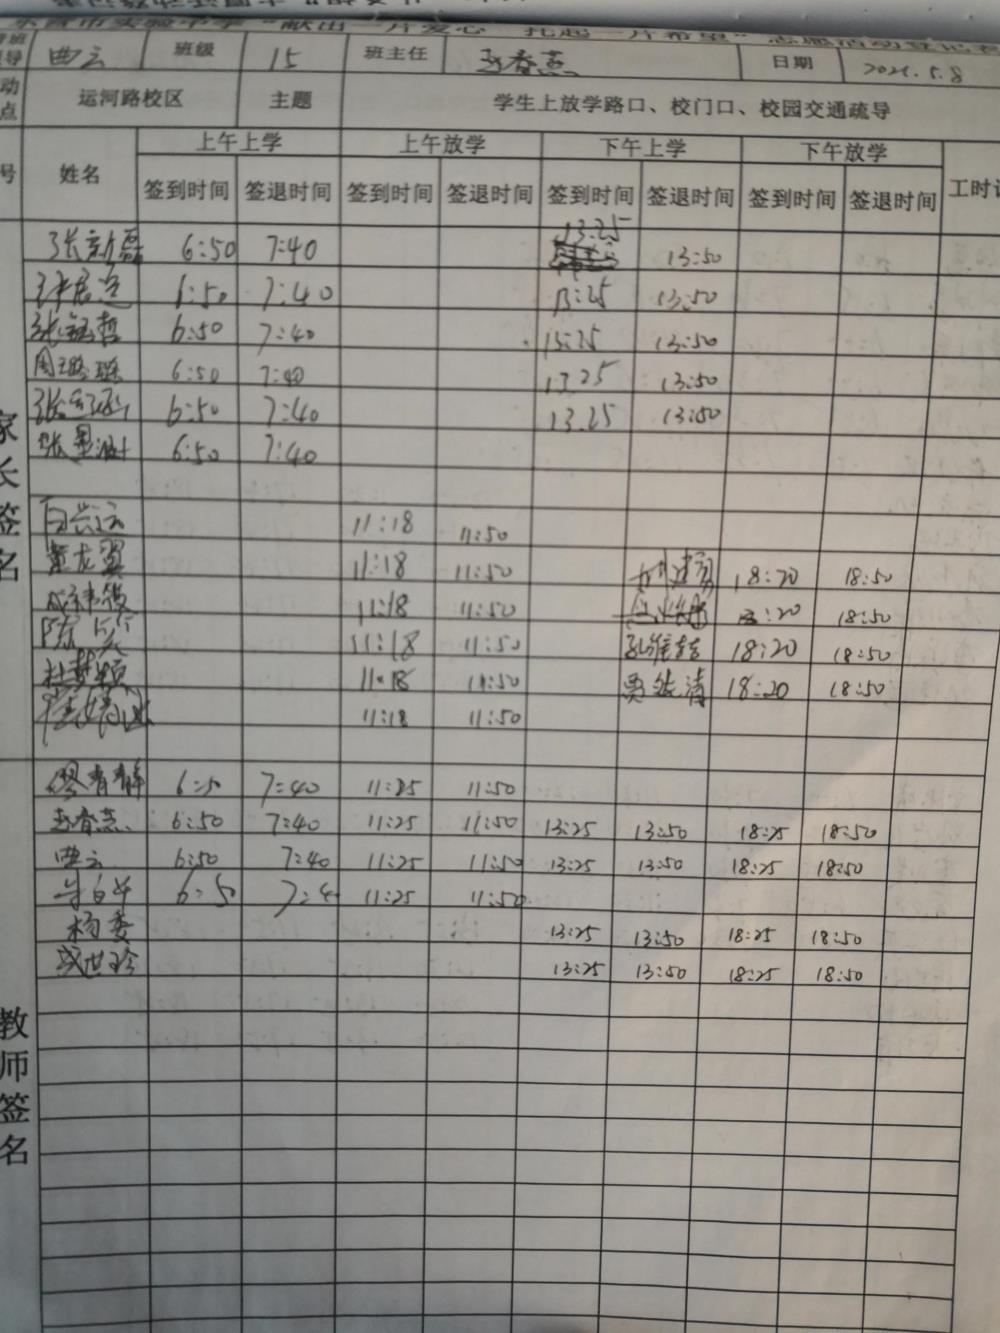 东营市实验中学“献出一片爱心 托起一片希望”志愿活动登记表
曲云 班级 15 班主任 赵春燕 日期 2021.5.8
运河路校区 主题 学生上放学路口、校门口、校园交通疏导
号 姓名 上午上学 上午放学 下午上学 下午放学
签到时间 签退时间 签到时间 签退时间 签到时间 签退时间 签到时间 签退时间 工时
张新磊 6:50 7:40 13:25 13:50
6:50 7:40 13:25 13:50
6:50 7:40 13:25 13:50
6:50 7:40 13.25 13:50
6:50 7:40 13.25 13:50
6:50 7:40
家长签名
白兴云 11:18 11:50
董龙翼 11:18 11:50 18:20 18:50
11:18 11:50 :20 18:50
11:18 11:50 18:20 18:50
11:18 11:50 贾继清 18:20 18:50
11:18 11:50
7:40 11:25 11:50
赵春燕 6:50 7:40 11:25 11:50 13:25 13:50 18:25 18:50
曲云 6:50 7:40 11:25 11:50 13:25 13:50 18:25 18:50
11:25 11:50
杨委 13:25 13:50 18:25 18:50
盛世珍 13:25 13:50 18:25 18:50
教师签名